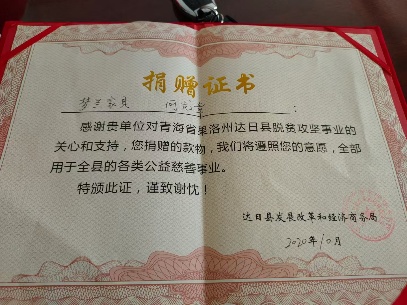 捐赠证书
梦兰家具
感谢贵单位对青海省果洛州达日县脱贫攻坚事业的
关心和支持，您捐赠的款物，我们将遵照您的意愿，全部
用于全县的各类公益慈善事业。
特颁此证，谨致谢忱！
达日县发展改革和经济商务局
2020年10月